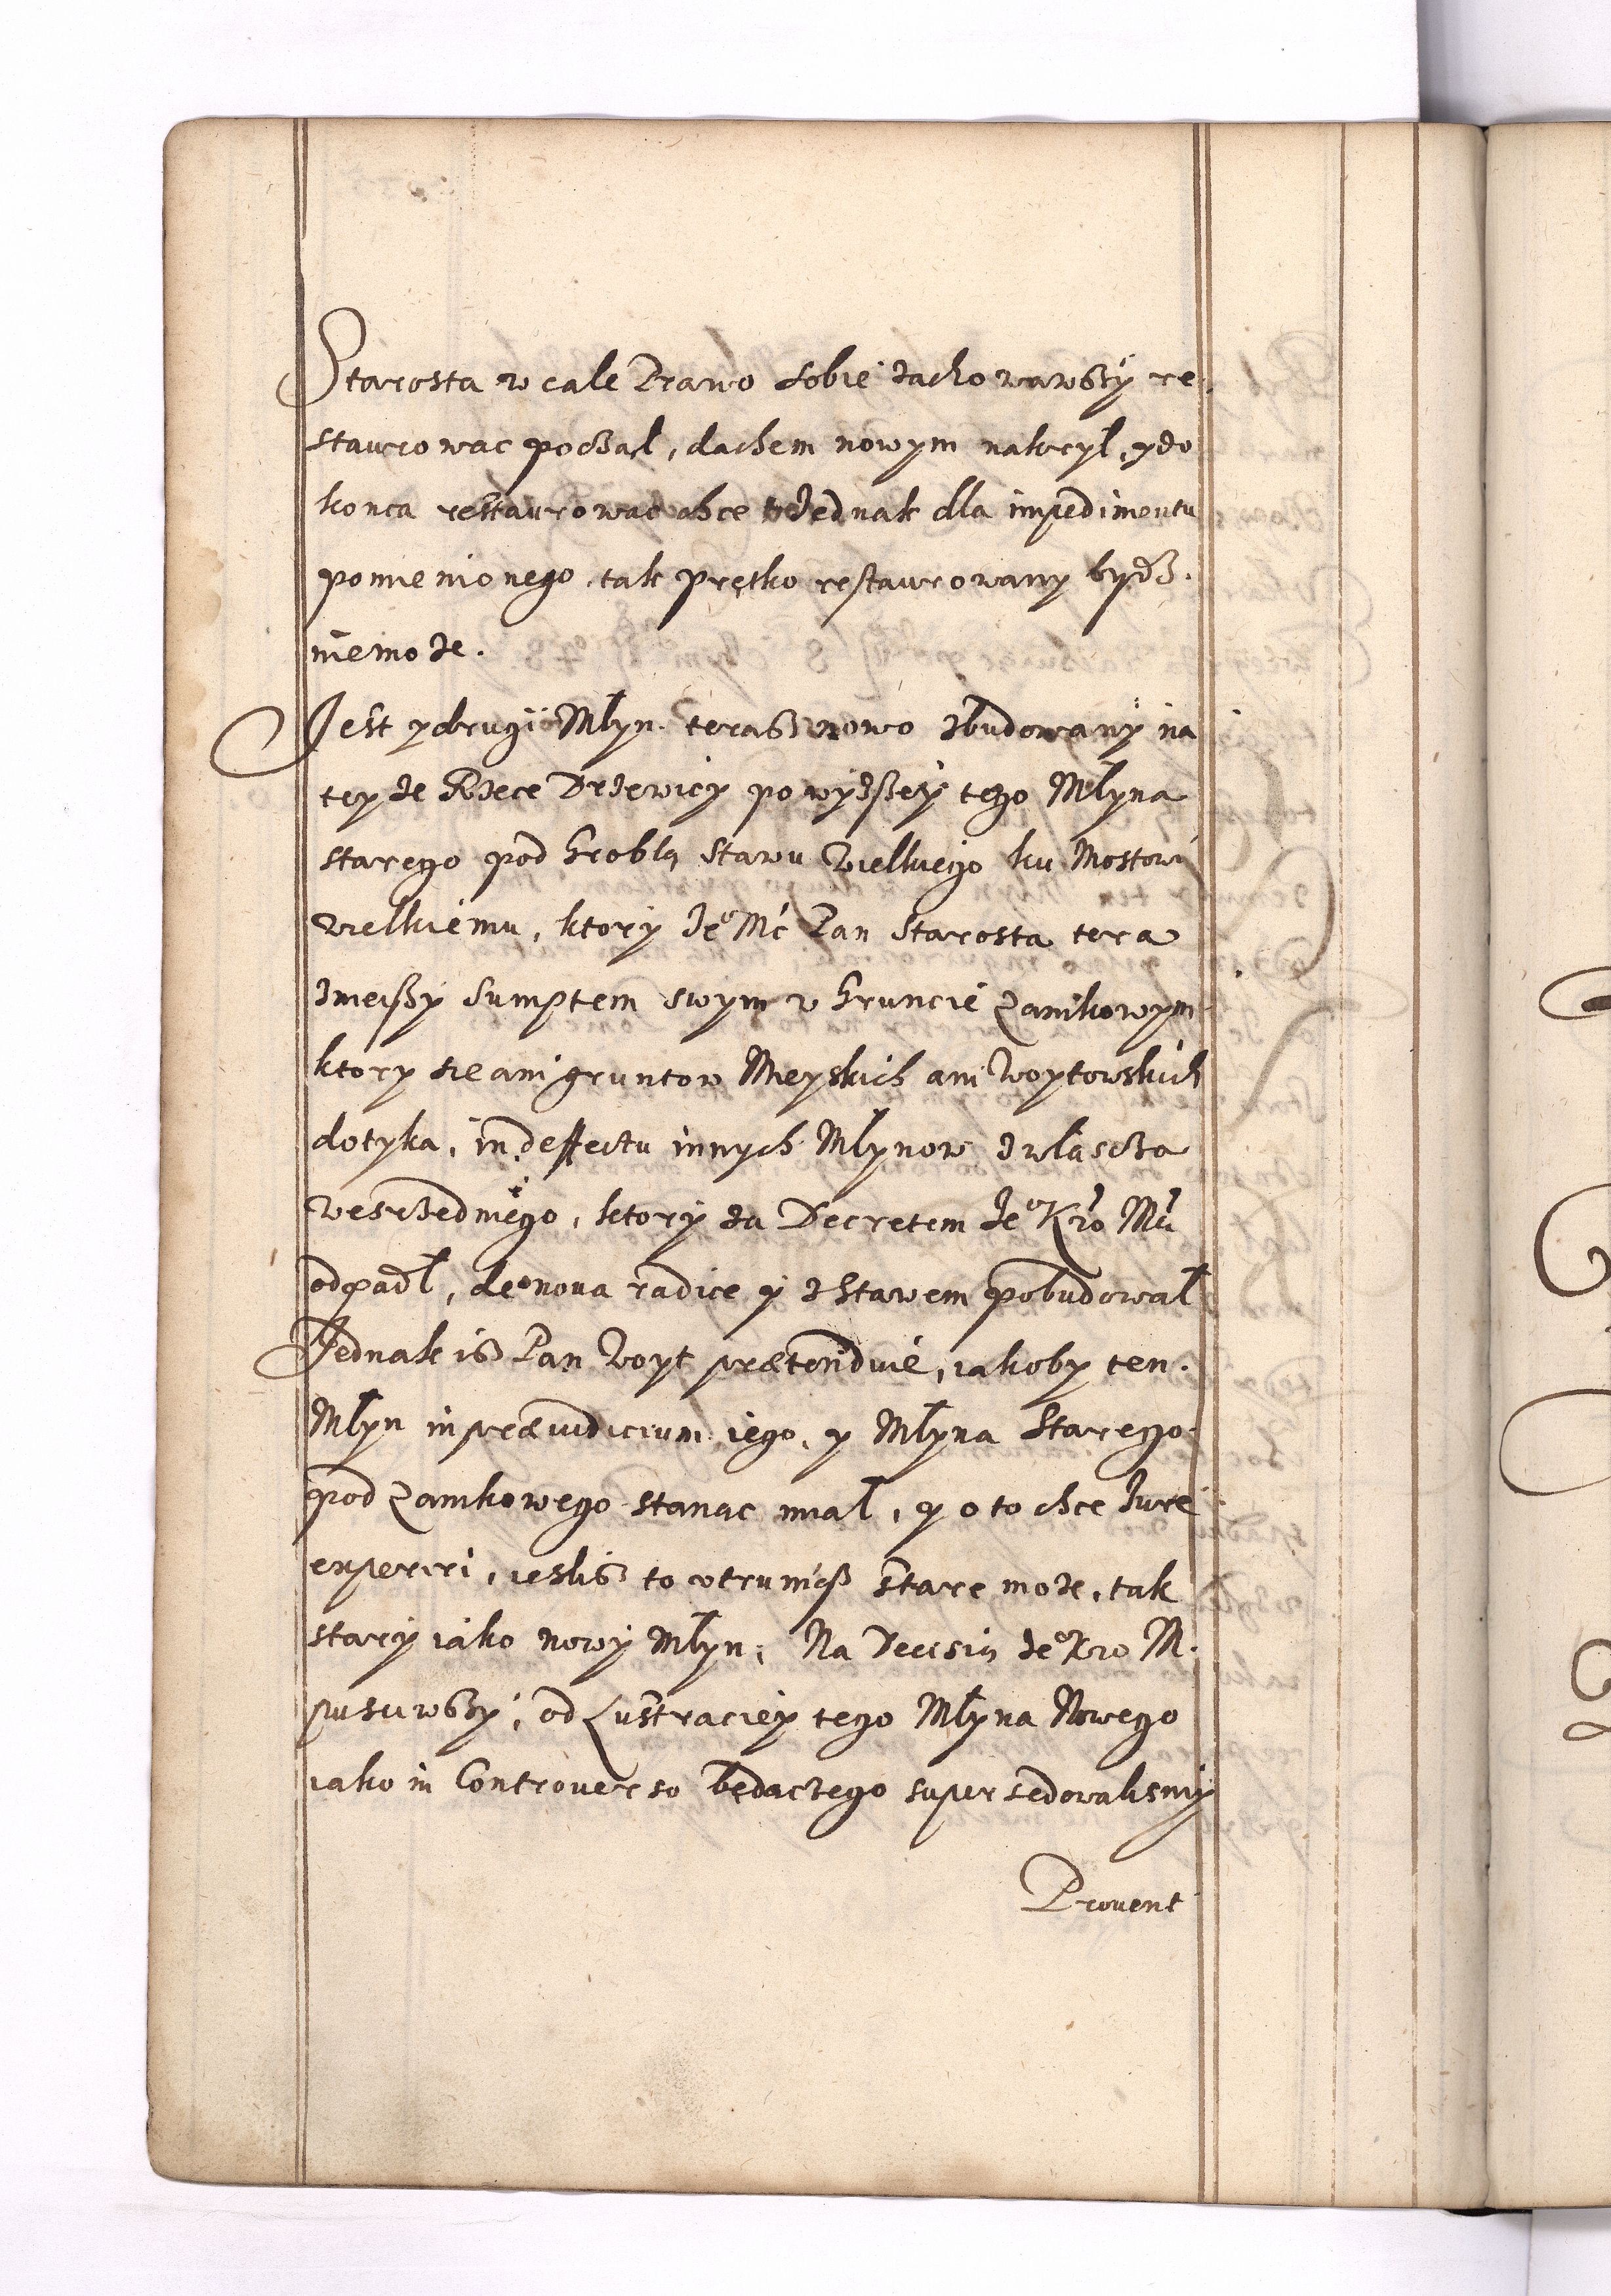 Starosta w cale Prawo sobie zachowawszy re-
staurowac poczał, dachem nowym nakrył, y do
konca restaurowac chce Jednak dla impedimentu
pomienionego, tak prętko restaurowany bydz.
niemoże.
Jest y drugi Młyn. teraz nowo zbudowany na
teyże Rzece Drzewicy powyższey tego Młyna
starego pod Groblą Stawu Wielkiego ku Mostowi
wielkiemu, ktory Jeo Mć Pan Starosta tera
znieiszy Sumptem swym w Gruncie Zamkowym
ktory sie ani gruntow Mieyskich ani Woytowskich
dotyka, in deffectu innych Młynow zwłascza
weśrzedniego, ktory za Decretem Jeo Kro Mći
odpadł, de nova radice y z Stawem pobudował
Jednak isz Pan Woyt prætenduie, iakoby ten.
Młyn in præiudicium iego, y Młyna Starego
pod Zamkowego stanąc miał, y o to chce Jure
experiri, ieslisz to otrunicz Stare może, tak
stary iako nowy Młyn; Na Decisią Jeo Kro M.
pusciwszy, od Lustraciey tego Młyna Nowego
iako in Controverso będaczego supersedowalismy
Prouent